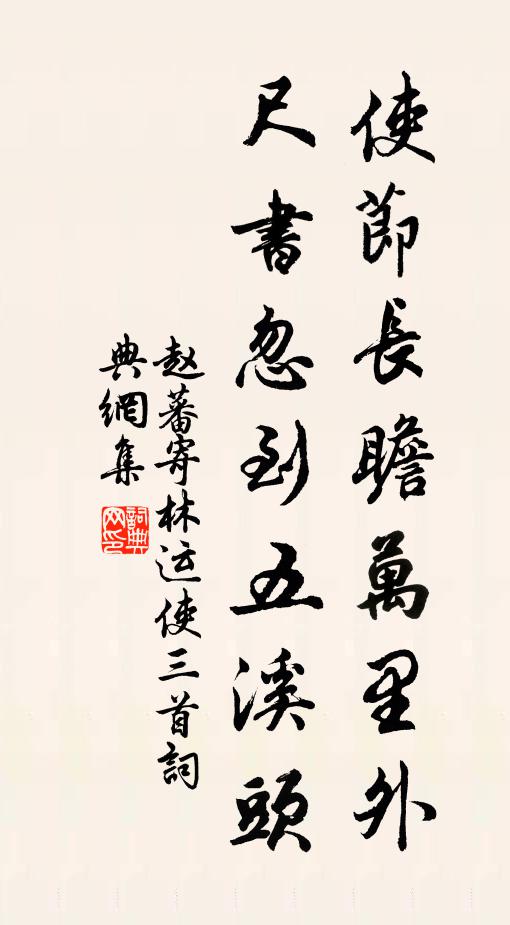 使節長瞻萬里外
尺書忽到五溪頭
赵蕃寄林运使三首詞
典網集
詞典网印